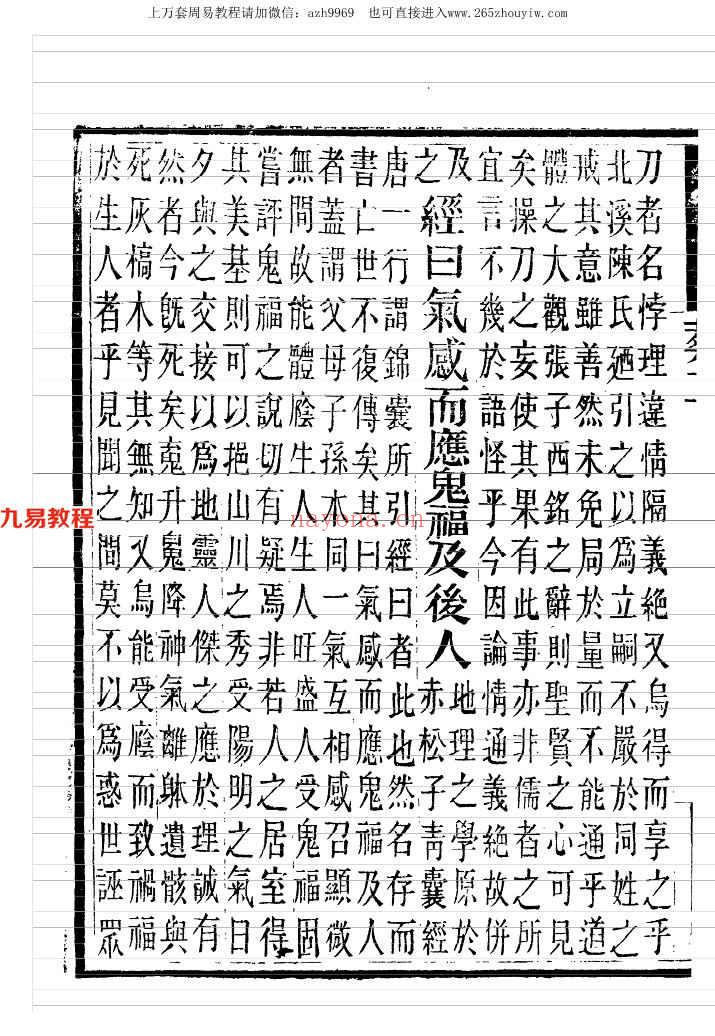 上万套周易教程请加微信：azh9969 也可直接进入www.265zhouyiw.com
刀者名悖理違情隔義絶又烏得而享之乎
北溪陳氏廼引之以爲立嗣不嚴於同姓之
戒其意雖善然未免局於量而不能通乎道
體之大觀張子西銘之辭則聖賢之心可見
矣操刀之妄使其果有此事亦非儒者之所
宜言不幾於語怪乎今因論情通義絶故併
及
之
經曰氣感而應鬼福及後人
地理之學原於
赤松子靑囊經
唐一行謂錦囊所引經曰者此也然名存而
書亡世不復傳矣其曰氣感而應鬼福及人
者蓋謂父母子孫本同一氣互相感召顯微
無間故能體廕生人生人旺盛人受鬼福固
嘗評鬼福之說切有疑焉非若人之居室得
其美基則可以挹山川之秀受陽明之氣日
夕與之交接以爲地靈人傑之應於理誠有
然者今旣死矣䰟升魄降神氣離躰遺骸與
死灰槁木等其無知又烏能受廕而致禍福
於生人者乎見聞之間莫不以爲惑世誣眾
九易教程
nayona.cn